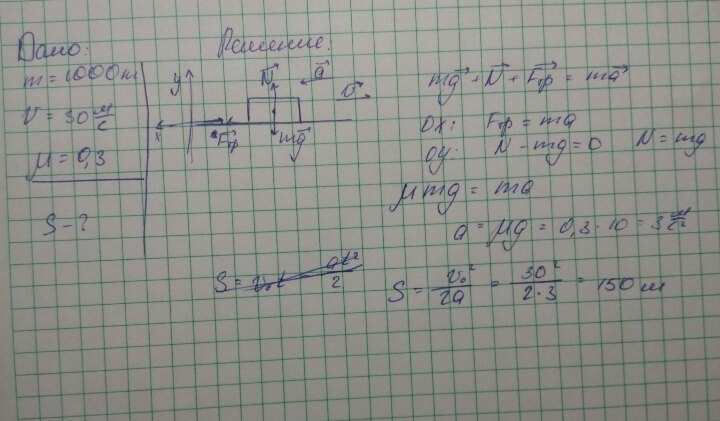 Дано:
m = 1000 кг
υ = 30 м/с
μ = 0,3
S - ?
Решение:
y
N⃗
a⃗
υ⃗
x
F⃗тр
mg⃗
mg⃗ + N⃗ + F⃗тр = ma⃗
OX: Fтр = ma
OY: N - mg = 0 N = mg
μmg = ma
a = μg = 0,3 · 10 = 3 м/с²
S = υ₀t at²/2
S = υ₀²/2a = 30²/2·3 = 150 м